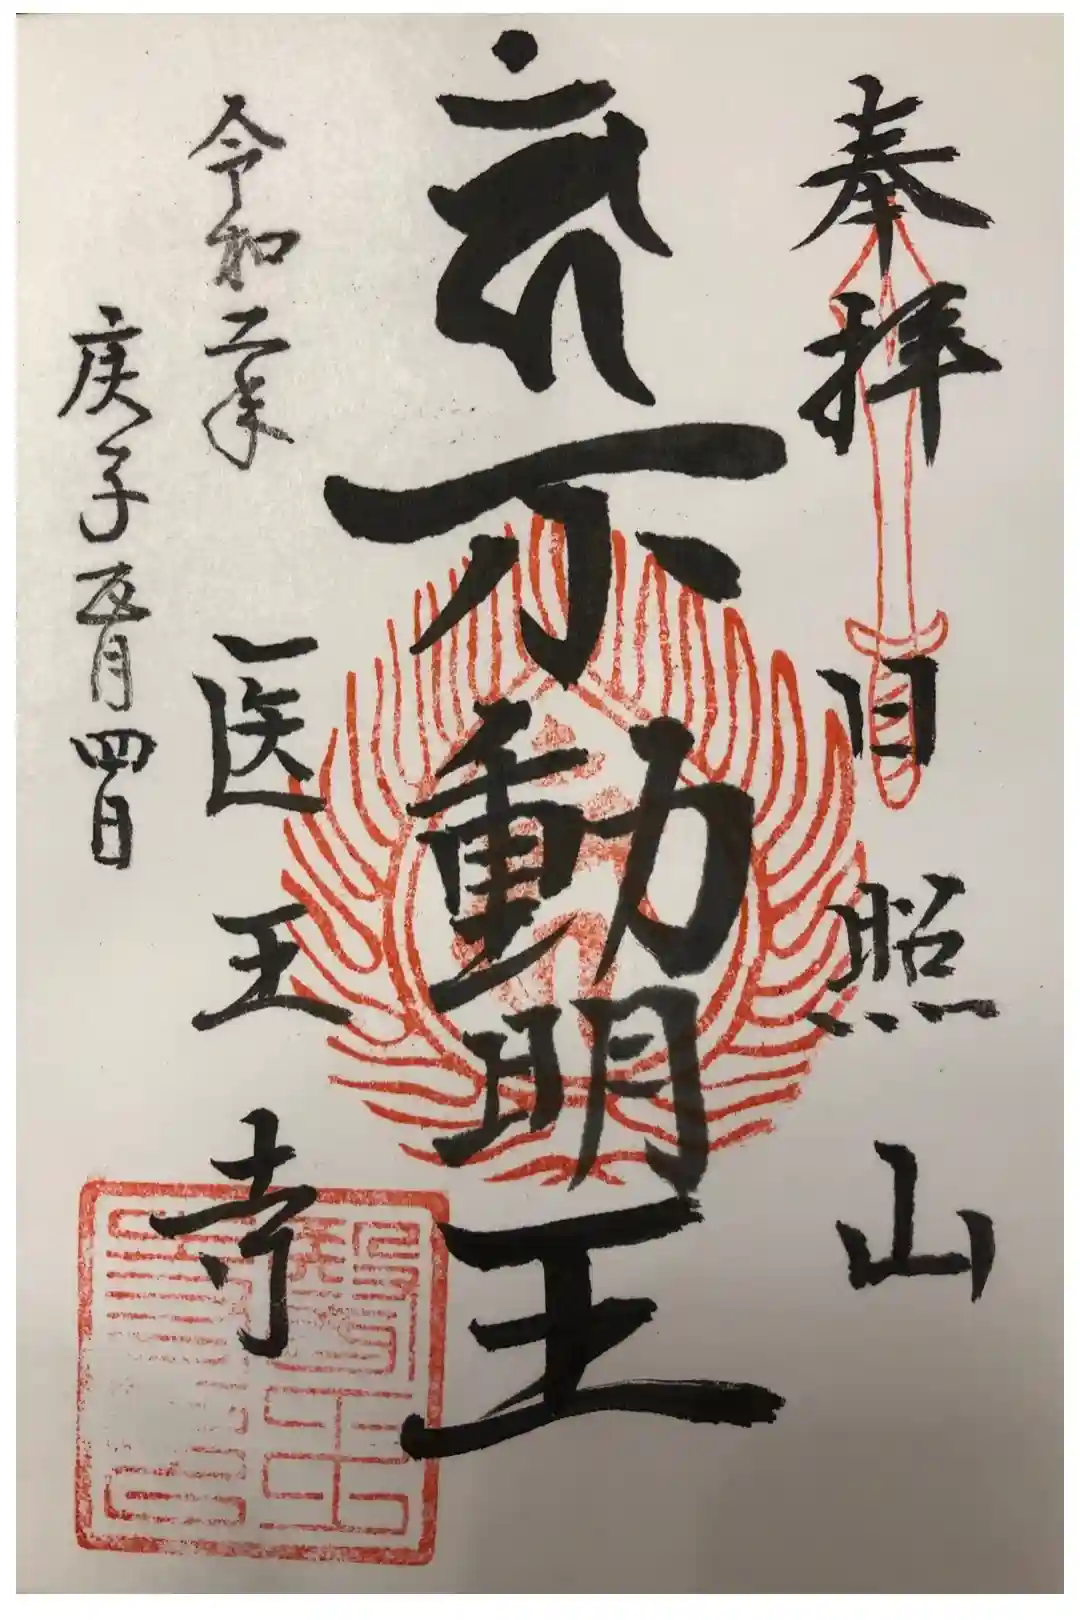 奉拝
日照山
不動明王
医王寺
令和二年
庚子五月四日